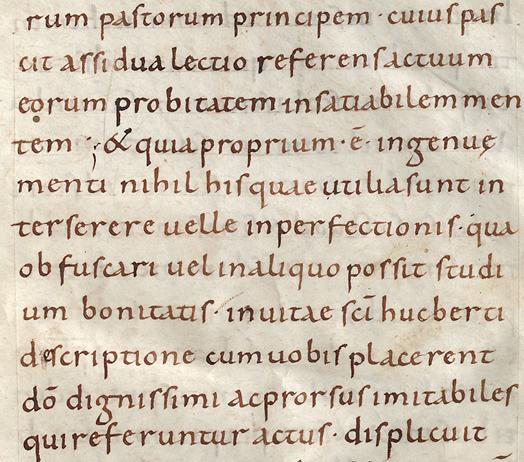 rum pastorum principem · cuius pas
cit assidua lectio referens actuum
eorum probitatem insatiabilem men
tem ; & quia proprium · ē · ingenuę
menti nihil his quae utilia sunt in
terserere uelle inperfectionis · qua
obfuscari uel in aliquo possit studi
um bonitatis · in uitae sc̄i hucberti
descriptione cum uobis placerent
dō dignissimi ac prorsus imitabiles
qui referuntur actus · displicuit